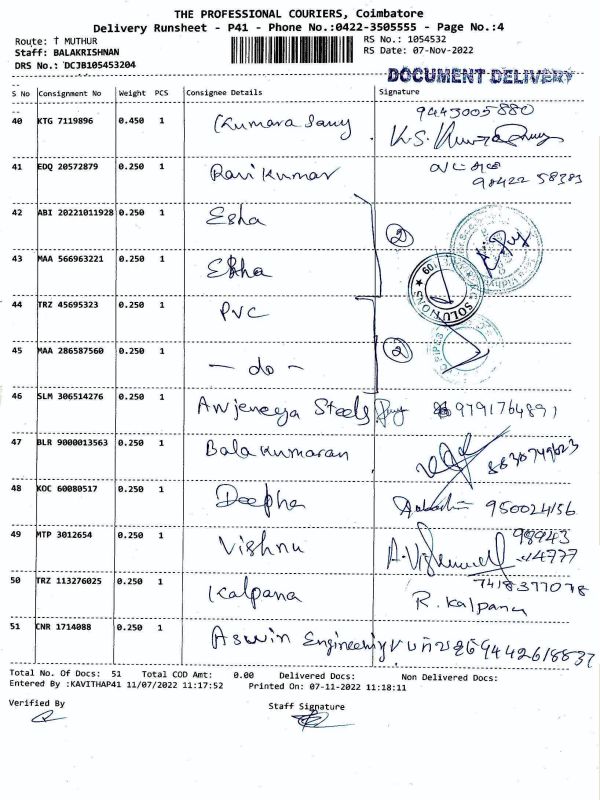 THE PROFESSIONAL COURIERS, Coimbatore
Delivery Runsheet - P41 - Phone No.:0422-3505555 - Page No.:4
Route: † MUTHUR
RS No.: 1054532
Staff: BALAKRISHNAN
RS Date: 07-Nov-2022
DRS No.: DCJB105453204
DOCUMENT DELIVERY
S No Consignment No Weight PCS Consignee Details Signature
40 KTG 7119896 0.450 1 Kumara Samy 9443005880
41 EDQ 20572879 0.250 1 Ravi Kumar 98422 58383
42 ABI 20221011928 0.250 1 Esha
43 MAA 566963221 0.250 1 Esha
2
SOLUTIONS
44 TRZ 45695323 0.250 1 PVC
45 MAA 286587560 0.250 1 - do -
2
46 SLM 306514276 0.250 1 Anjeneya Steels 9791764891
47 BLR 9000013563 0.250 1 Bala Kumaran
48 KOC 60080517 0.250 1 Deepha 95002456
49 MTP 3012654 0.250 1 Vishnu 98943
14777
50 TRZ 113276025 0.250 1 Kalpana 7418377078
R. Kalpana
51 CNR 1714088 0.250 1 Aswin Engineering 9442618837
Total No. Of Docs: 51 Total COD Amt: 0.00 Delivered Docs: Non Delivered Docs:
Entered By :KAVITHAP41 11/07/2022 11:17:52 Printed On: 07-11-2022 11:18:11
Verified By Staff Signature